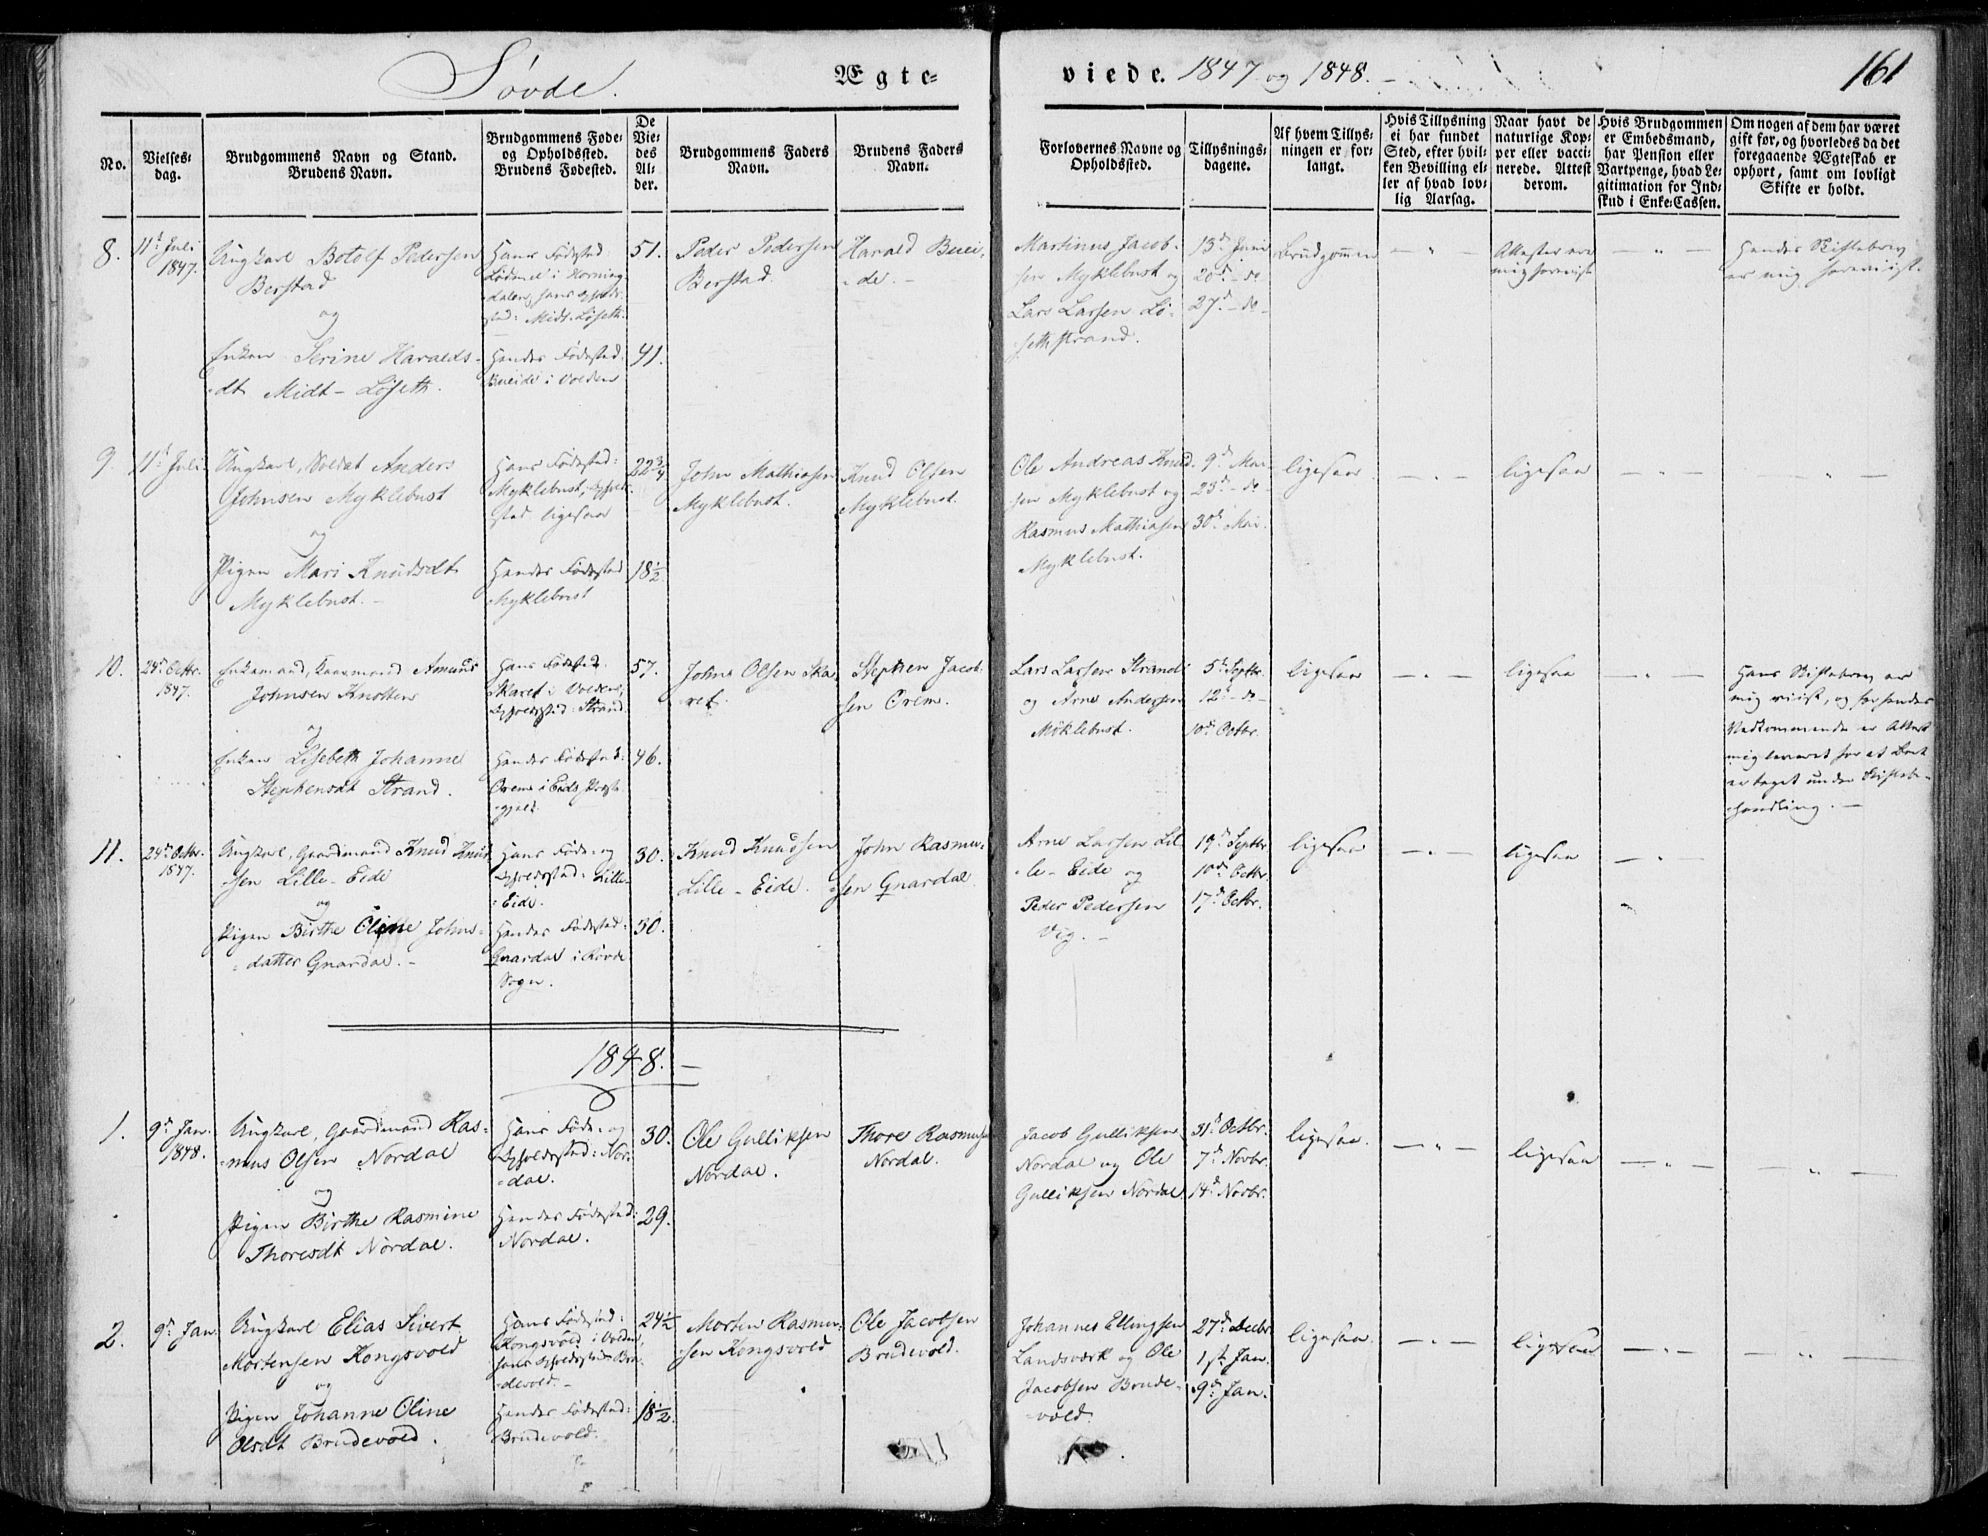 Søvde.
Ægte-
viede. 1847 og 1848.
161
No.
Vielses-
dag.
Brudgommens Navn og Stand.
Brudens Navn.
Brudgommens Føde-
og Opholdssted.
Brudens Fødested.
De
Vie-
des
Al-
der.
Brudgommens Faders
Navn.
Brudens Faders
Navn.
Forlovernes Navne og
Opholdssted.
Tillysnings-
dagene.
Af hvem Tillys-
ningen er for-
langt.
Hvis Tillysning
ei har fundet
Sted, efter hvil-
ken Bevilling el-
ler af hvad lov-
lig Aarsag.
Naar havt de
naturlige Kop-
per eller vacci-
nerede. Attest
derom.
Hvis Brudgommen
er Embedsmand,
har Pension eller
Vartpenge, hvad Le-
gitimation for Ind-
skud i Enke-Cassen.
Om nogen af dem har været
gift før, og hvorledes da det
foregaaende Ægteskab er
ophørt, samt om lovligt
Skifte er holdt.
8.
11te Juli
1847.
Ungkarl Botolf Pedersen
Berstad
og
Enken Serine Haralds-
dt. Midt-Løseth.
Hans Fødested
Lødmel i Horning-
dalen, hans Opholds-
sted: Midt-Løseth.
Hendes Fødested:
Bueide i Volden
51.
41.
Peder Pedersen
Berstad.
Harald Buei-
de.
Martinus Jacob-
sen Myklebust og
Lars Larsen Lø-
sethstrand.
13de Juni
20de - do
27de - do
Brudgommen
Attester ere
mig foreviist
Hendes Skiftebrev
er mig foreviist.
9.
11te Juli
Ungkarl, Soldat Anders
Johnsen Myklebust
og
Pigen Mari Knudsdt
Myklebust.
Hans Fødested:
Myklebust, Ophold-
sted ligesaa
Hendes Fødested
Myklebust
22 3/4
18 1/2
John Mathiasen
Myklebust.
Knud Olsen
Myklebust.
Ole Andreas Knud-
sen Myklebust og
Rasmus Mathiasen
Myklebust.
9de Mai
23de - do
30te Mai.
ligesaa
ligesaa
10.
24de Octbr.
1847.
Enkemand, Gaardmand Amund
Johnsen Knotten
og
Enken Lisebeth Johanne
Stephensdt Strand.
Hans Fødested.
Skaret i Volden,
Opholdssted: Strand.
Hendes Fødested:
Orem i Eids Præste-
gjeld.
57.
46.
John Olsen Ska-
ret.
Stephen Jacob-
sen Orem.
Lars Larsen Strand
og Arne Andersen
Möklebust.
5te Septbr.
12te - do
10de Octbr.
ligesaa
ligesaa
Hans Skiftebrev er
mig viist, og for hendes
Vedkommende er Attest
mig leveret for at Boet
er taget under Skiftebe-
handling.
11.
24de Octbr.
1847.
Ungkarl, Gaardmand Knud Knud-
sen Lille-Eide
og
Pigen Birthe Oline Johns-
datter Gnardal.
Hans Føde- og
Opholdssted: Lille-
Eide.
Hendes Fødested:
Gnardal i Rovde
Sogn.
30.
30.
Knud Knudsen
Lille-Eide.
John Rasmu-
sen Gnardal
Arne Larsen Lil-
le-Eide og
Peder Pedersen
Vig.
19de Septbr
10de Octbr.
17de Octbr.
ligesaa
ligesaa
1848.
1.
9de Jan.
1848.
Ungkarl, Gaardmand Ras-
mus Olsen Nordal
og
Pigen Birthe Rasmine
Thoresdt Nordal.
Hans Føde- og
Opholdssted: Nor-
dal.
Hendes Fødested:
Nordal.
30.
29.
Ole Gulliksen
Nordal.
Thore Rasmusen
Nordal.
Jacob Gulliksen
Nordal og Ole
Gulliksen Nordal
31te Octbr.
7de Novbr.
14de Novbr.
ligesaa.
ligesaa
2.
9de Jan.
Ungkarl Elias Sivert
Mortensen Kongsvold
og
Pigen Johanne Oline
Olsdt Brudevold.
Hans Fødested:
Kongsvold i Volden,
hans Opholdssted Bru-
devold.
Hendes Fødested:
Brudevold.
24 1/2
18 1/2.
Morten Rasmu-
sen Kongsvold
Ole Jacobsen
Brudevold.
Johannes Ellingsen
Landsværk og Ole
Jacobsen Brude-
vold.
27de Decbr
1ste Jan.
9de Jan.
ligesaa.
ligesaa